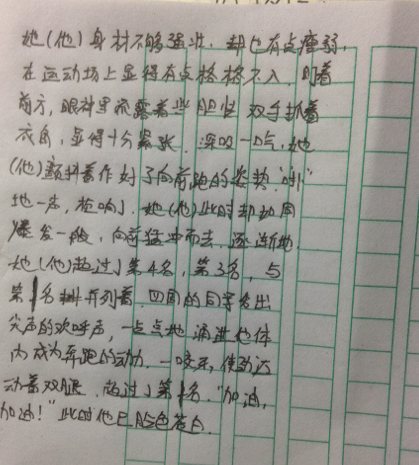 她(他)身材不够强壮,却也有点瘦弱,
在运动场上显得有点格格不入,盯着
前方,眼神里流露着些胆怯 双手抓着
衣角,显得十分紧张.深吸一口气,她
(他)颤抖着作好了向前跑的姿势."咻"
地一声,枪响了,她(他)此时却如同
爆发一般,向前猛冲而去,逐渐地.
她(他)超过了第4名,第3名,与
第1名并列着.四周的同学发出
尖声的欢呼声,一点点地涌进他体
内成为奔跑的动力.一咬牙,使劲迈
动着双腿 超过了第1名."加油,
加油!"此时他已脸色苍白.